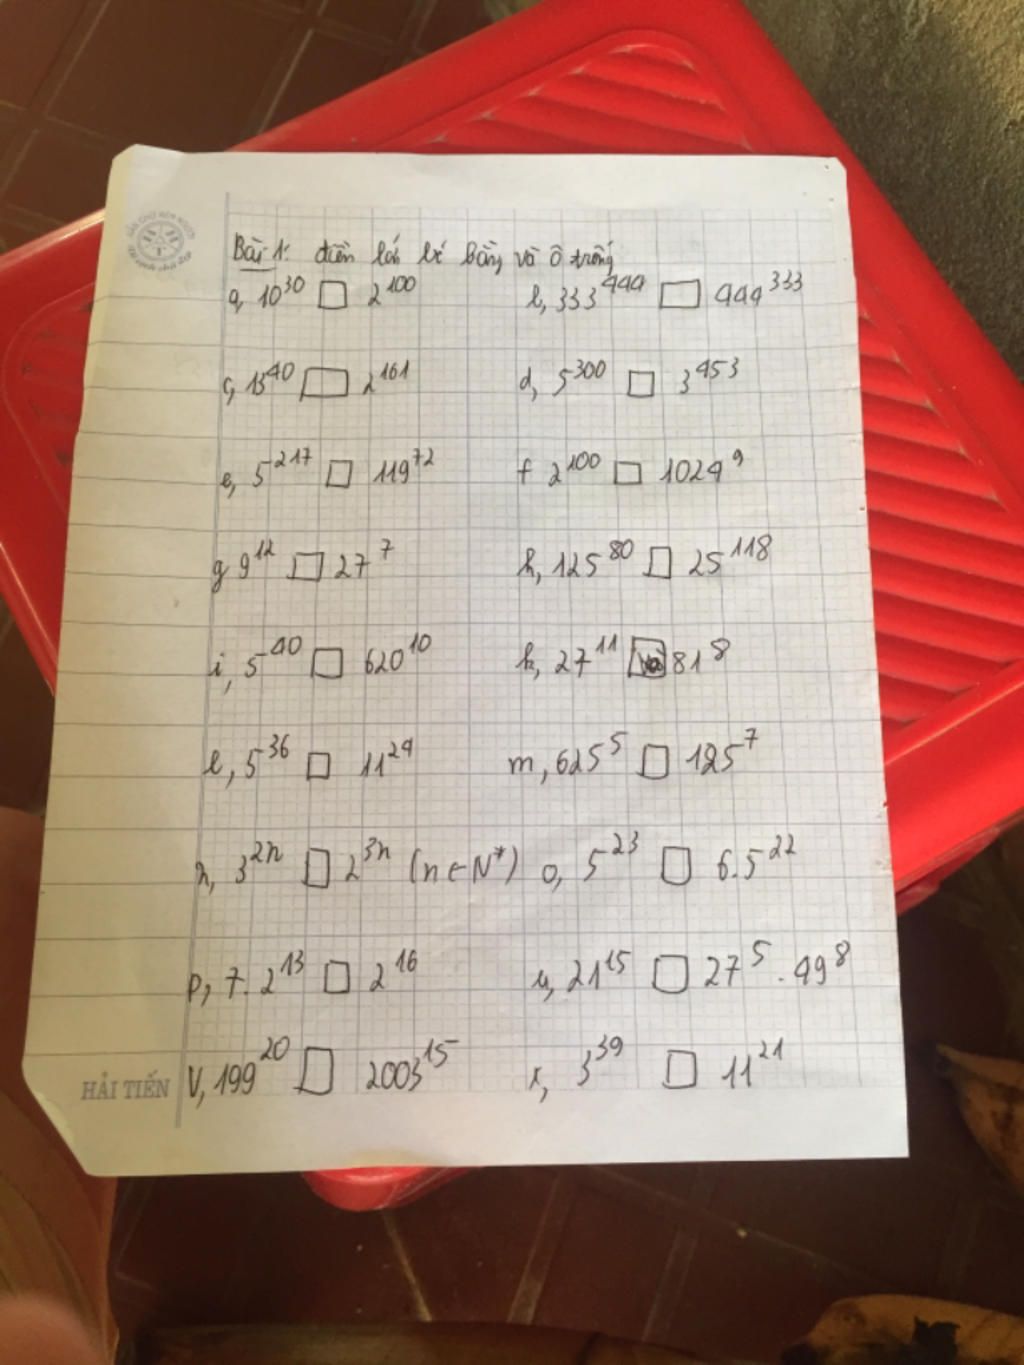 Bài 1: điền lớn bé bằng và ô trống
a, 10³⁰ □ 2¹⁰⁰ b, 333⁴⁴⁴ □ 444³³³
c, 13⁴⁰ □ 2¹⁶¹ d, 5³⁰⁰ □ 3⁴⁵³
e, 5²¹⁷ □ 119⁷² f 2¹⁰⁰ □ 1024⁹
g 9¹² □ 27⁷ h, 125⁸⁰ □ 25¹¹⁸
i, 5⁴⁰ □ 620¹⁰ k, 27¹¹ □ 81⁸
l, 5³⁶ □ 11²⁴ m, 625⁵ □ 125⁷
n, 3²ⁿ □ 2³ⁿ (n ∈ N*) o, 5²³ □ 6.5²²
p, 7.2¹³ □ 2¹⁶ u, 21¹⁵ □ 27⁵.49⁸
V, 199²⁰ □ 2003¹⁵ x, 3³⁹ □ 11²¹
HẢI TIẾN